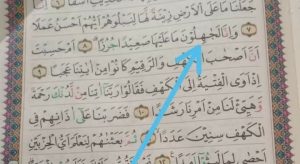 جَعَلْنَا مَا عَلَى الْأَرْضِ زِينَةً لَهَا لِنَبْلُوَهُمْ أَيُّهُمْ أَحْسَنُ عَمَلًا
٧ وَإِنَّا لَجَهِلُونَ مَا عَلَيْهَا صَعِيدًا جُرُزًا ٨ أَمْ حَسِبْتَ
أَنَّ أَصْحَٰبَ الْكَهْفِ وَالرَّقِيمِ كَانُوا مِنْ آيَٰتِنَا عَجَبًا ٩
إِذْ أَوَى الْفِتْيَةُ إِلَى الْكَهْفِ فَقَالُوا رَبَّنَا آتِنَا مِنْ لَدُنْكَ رَحْمَةً
وَهَيِّئْ لَنَا مِنْ أَمْرِنَا رَشَدًا ١٠ فَضَرَبْنَا عَلَى آذَانِهِمْ فِي
الْكَهْفِ سِنِينَ عَدَدًا ١١ ثُمَّ بَعَثْنَٰهُمْ لِنَعْلَمَ أَيُّ الْحِزْبَيْنِ